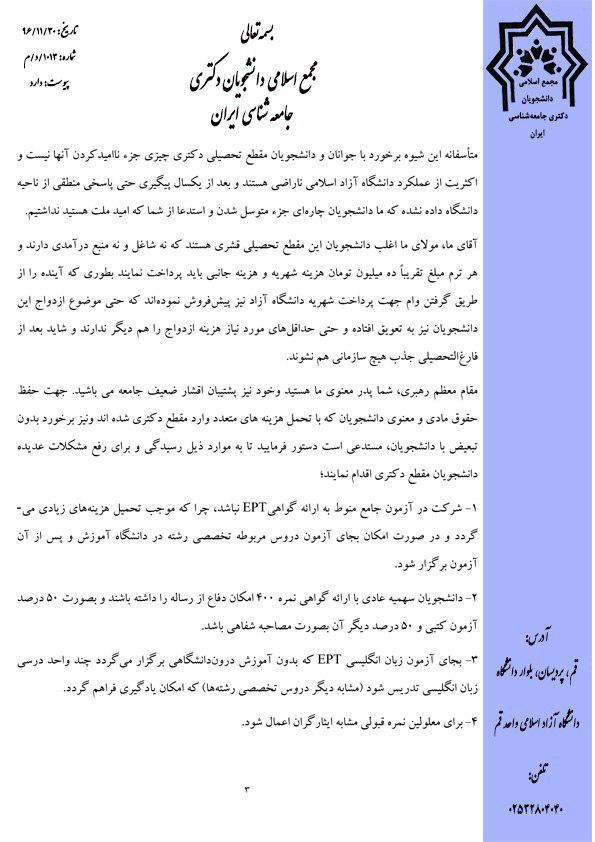 بسمه تعالی
مجمع اسلامی دانشجویان دکتری
جامعه شناسی ایران
تاریخ: ۹۶/۱۱/۳۰
شماره: ۱۰۱۳/د/م
پیوست: دارد
مجمع اسلامی
دانشجویان
دکتری جامعه‌شناسی
ایران
متأسفانه این شیوه برخورد با جوانان و دانشجویان مقطع تحصیلی دکتری چیزی جزء ناامیدکردن آنها نیست و
اکثریت از عملکرد دانشگاه آزاد اسلامی ناراضی هستند و بعد از یکسال پیگیری حتی پاسخی منطقی از ناحیه
دانشگاه داده نشده که ما دانشجویان چاره‌ای جزء متوسل شدن و استدعا از شما که امید ملت هستید نداشتیم.
آقای ما، مولای ما اغلب دانشجویان این مقطع تحصیلی قشری هستند که نه شاغل و نه منبع درآمدی دارند و
هر ترم مبلغ تقریباً ده میلیون تومان هزینه شهریه و هزینه جانبی باید پرداخت نمایند بطوری که آینده را از
طریق گرفتن وام جهت پرداخت شهریه دانشگاه آزاد نیز پیش‌فروش نموده‌اند که حتی موضوع ازدواج این
دانشجویان نیز به تعویق افتاده و حتی حداقل‌های مورد نیاز هزینه ازدواج را هم دیگر ندارند و شاید بعد از
فارغ‌التحصیلی جذب هیچ سازمانی هم نشوند.
مقام معظم رهبری، شما پدر معنوی ما هستید وخود نیز پشتیبان اقشار ضعیف جامعه می باشید. جهت حفظ
حقوق مادی و معنوی دانشجویان که با تحمل هزینه های متعدد وارد مقطع دکتری شده اند ونیز برخورد بدون
تبعیض با دانشجویان، مستدعی است دستور فرمایید تا به موارد ذیل رسیدگی و برای رفع مشکلات عدیده
دانشجویان مقطع دکتری اقدام نمایند؛
۱- شرکت در آزمون جامع منوط به ارائه گواهیEPT نباشد، چرا که موجب تحمیل هزینه‌های زیادی می-
گردد و در صورت امکان بجای آزمون دروس مربوطه تخصصی رشته در دانشگاه آموزش و پس از آن
آزمون برگزار شود.
۲- دانشجویان سهمیه عادی با ارائه گواهی نمره ۴۰۰ امکان دفاع از رساله را داشته باشند و بصورت ۵۰ درصد
آزمون کتبی و ۵۰ درصد دیگر آن بصورت مصاحبه شفاهی باشد.
۳- بجای آزمون زبان انگلیسی EPT که بدون آموزش درون‌دانشگاهی برگزار می‌گردد چند واحد درسی
زبان انگلیسی تدریس شود (مشابه دیگر دروس تخصصی رشته‌ها) که امکان یادگیری فراهم گردد.
۴- برای معلولین نمره قبولی مشابه ایثارگران اعمال شود.
آدرس:
قم، پردیسان، بلوار دانشگاه
دانشگاه آزاد اسلامی واحد قم
تلفن:
۰۲۵۳۲۸۰۴۰۴۰
۳